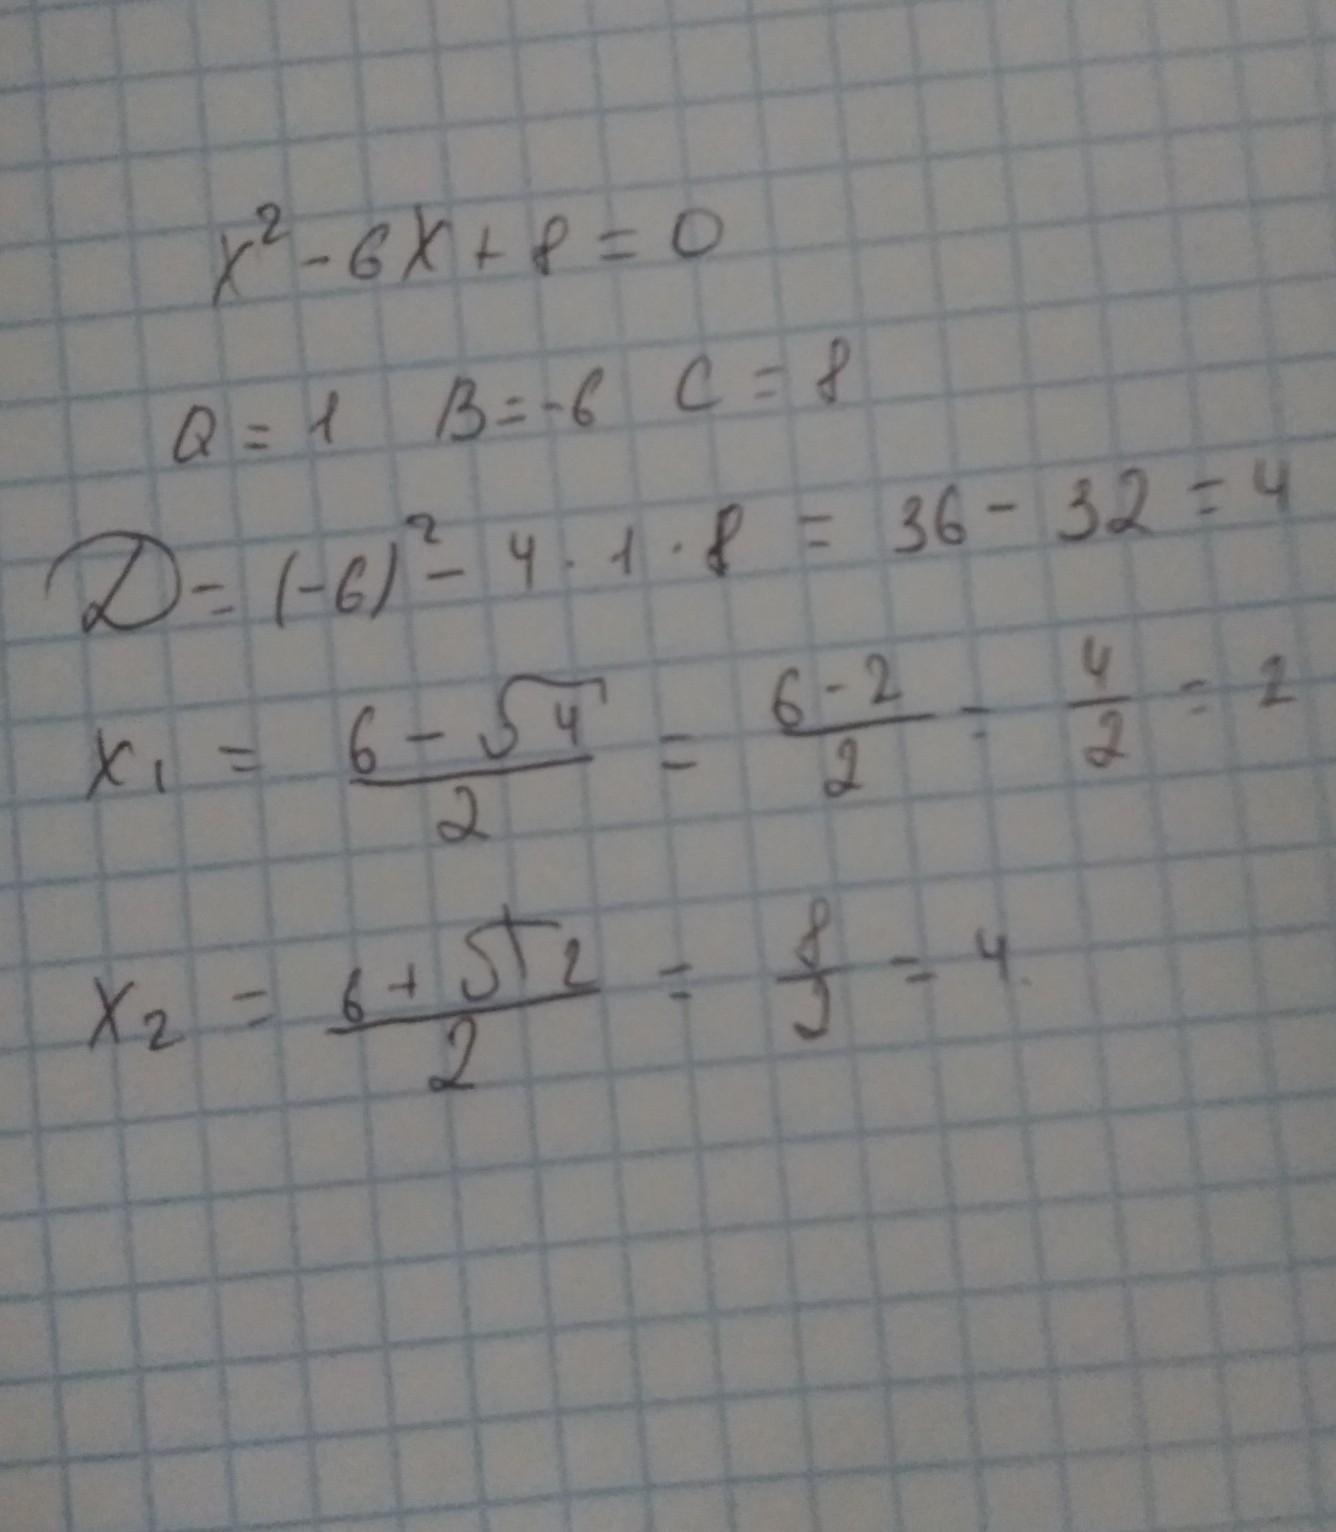 x² - 6x + 8 = 0
a = 1 B = -6 C = 8
D = (-6)² - 4 · 1 · 8 = 36 - 32 = 4
x₁ = (6 - √4)/2 = (6 - 2)/2 = 4/2 = 2
x₂ = (6 + √2)/2 = 8/2 = 4